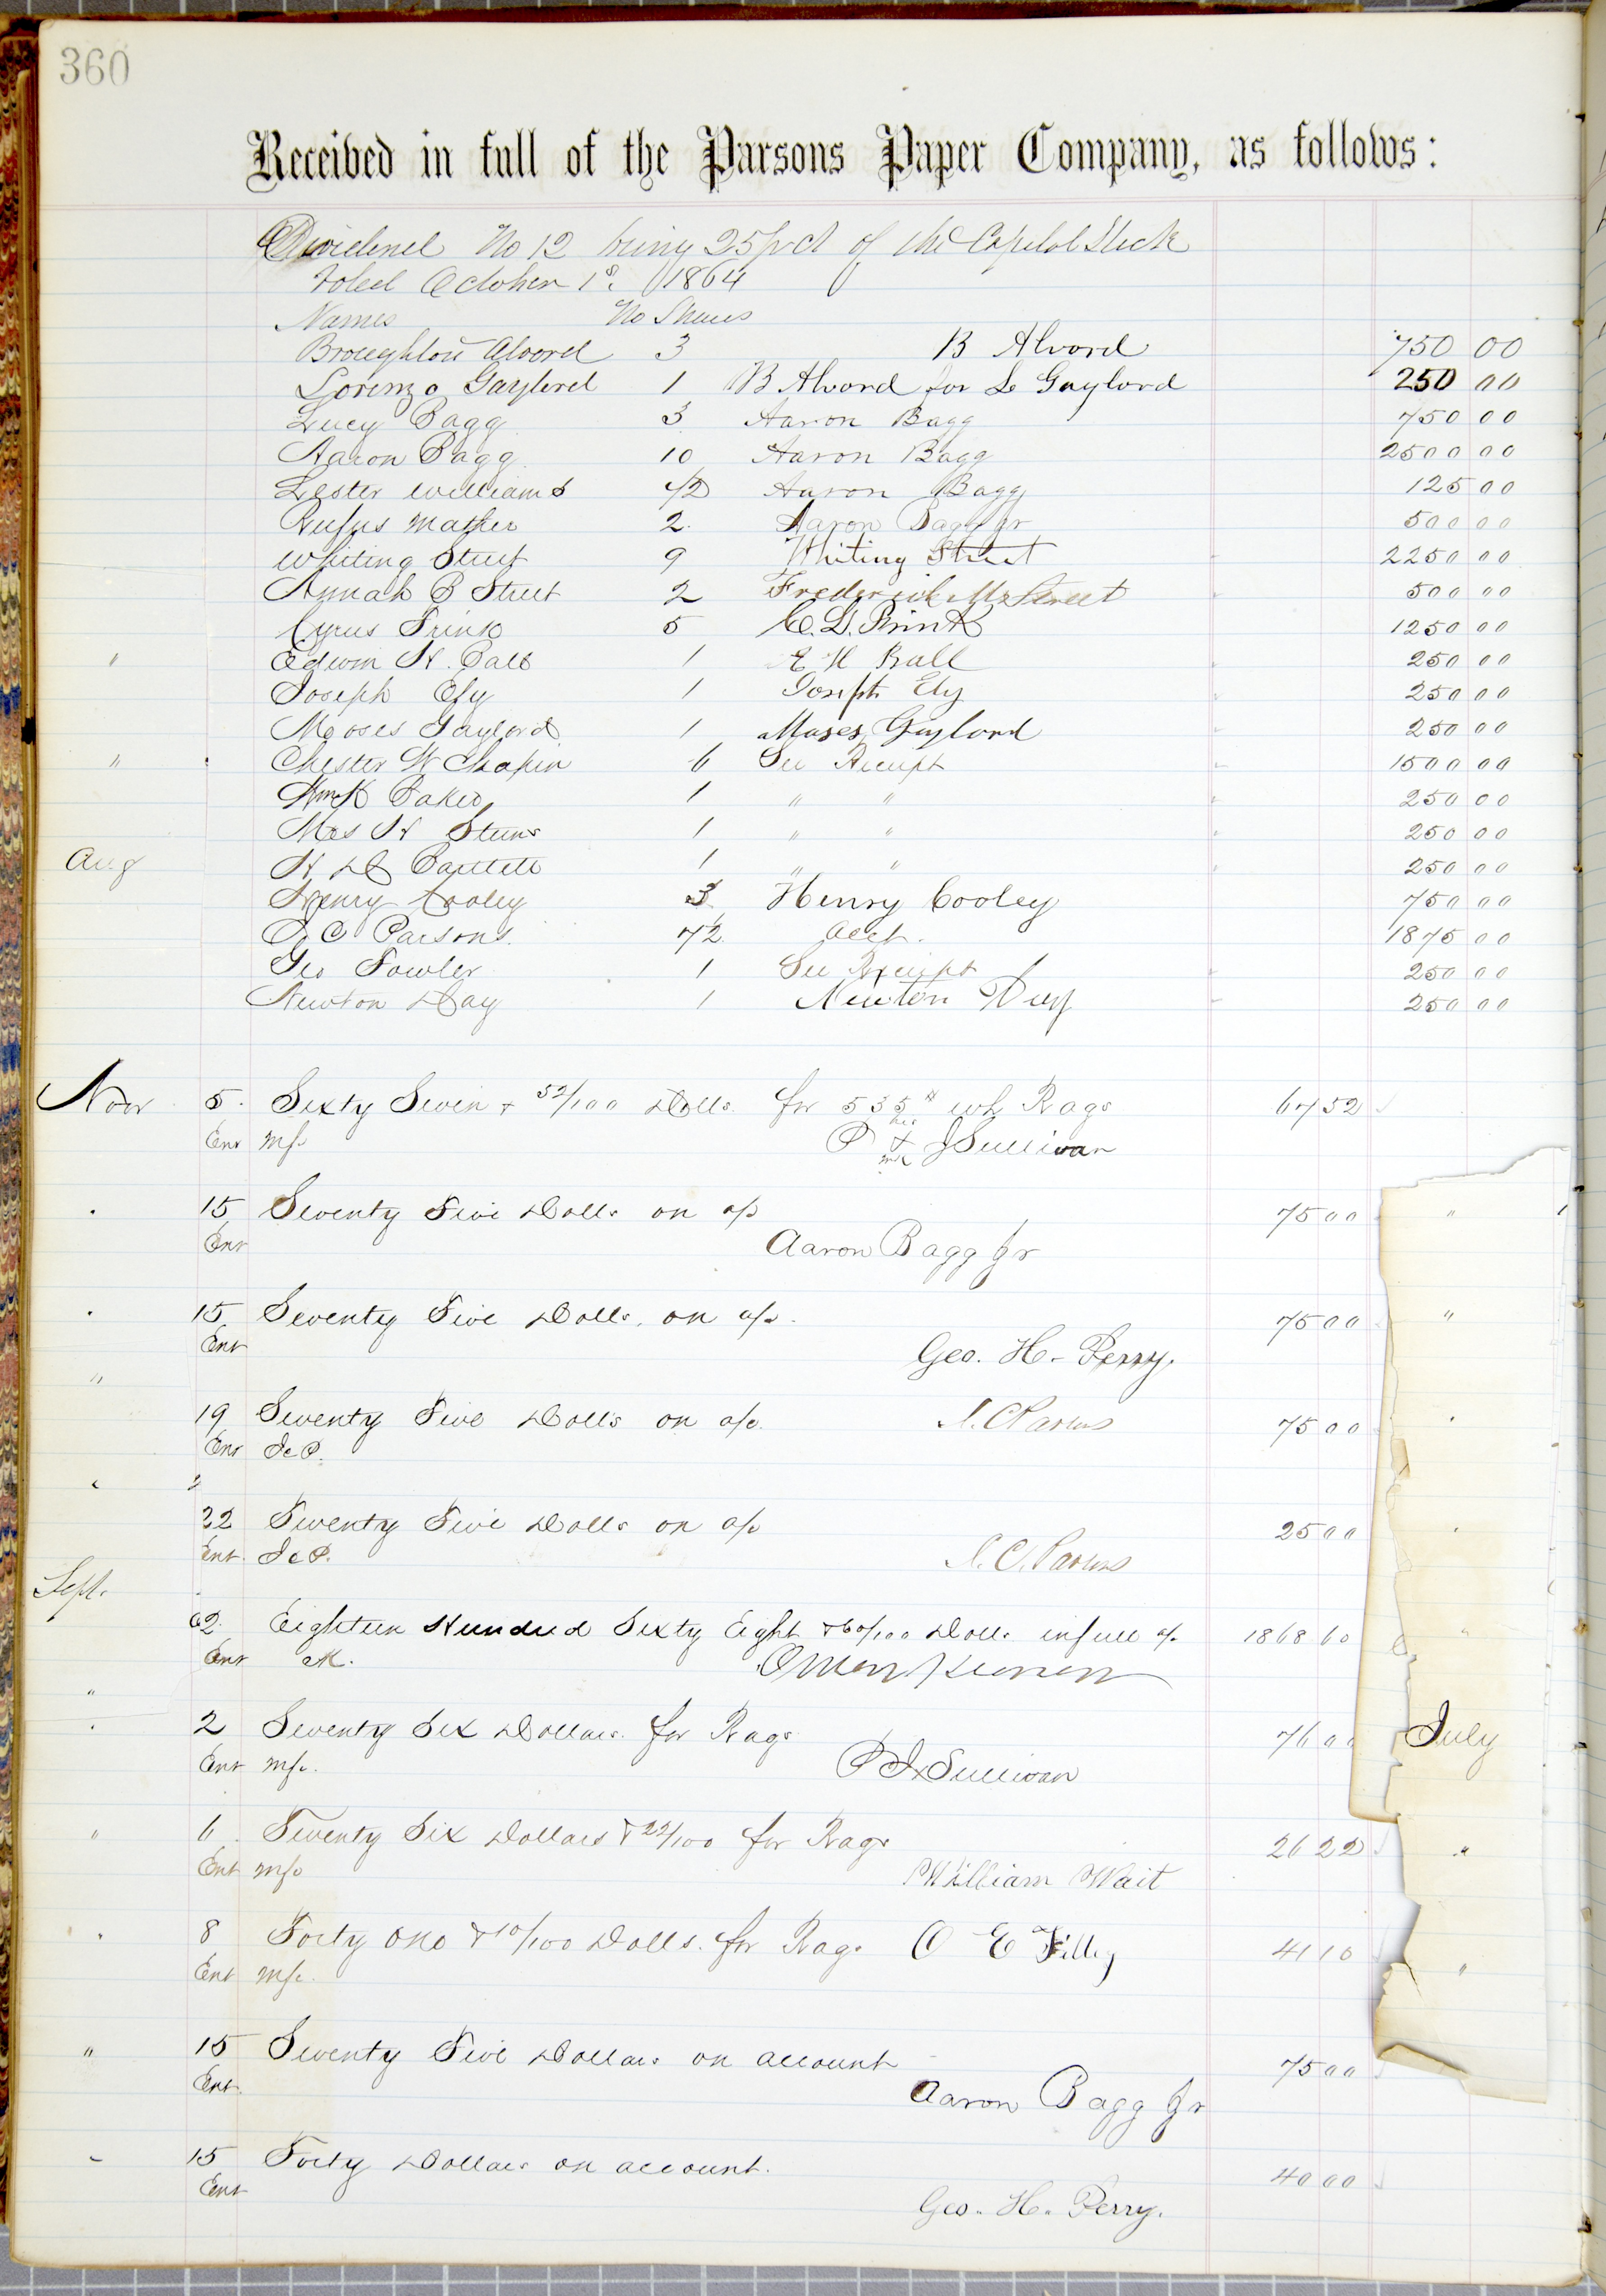 360
Received in full of the Parsons Paper Company, as follows:
Dividend No 12 being 25 pr ct of the Capital Stock
Voted October 1s. 1864
Names No Shares
Broughton Alvord 3 B Alvord 750 00
Lorenzo Gaylord 1 B Alvord for L Gaylord 250 00
Lucy Bagg 3 Aaron Bagg 750 00
Aaron Bagg 10 Aaron Bagg 2500 00
Lester Williams 1/2 Aaron Bagg 125 00
Rufus Mather 2 Aaron Bagg Jr 500 00
Whiting Street 9 Whiting Street 2250 00
Annah B Street 2 Frederick M Street 500 00
Cyrus Frink 5 C. Frink 1250 00
" Edwin H. Ball 1 E H Ball 250 00
Joseph Ely 1 Joseph Ely 250 00
Moses Gaylord 1 Moses Gaylord 250 00
" Chester W Chapin 6 See Receipt 1500 00
Wm K Baker 1 " " 250 00
Mrs H Stearns 1 " " 250 00
Aug H D Bartlett 1 " " 250 00
Henry Cooley 3 Henry Cooley 750 00
J C Parsons 7 1/2 acct. 1875 00
Geo Fowler 1 See Receipt 250 00
Newton Day 1 Newton Day 250 00
Nov 5 Sixty Seven & 52/100 Dolls. for 535 # wh Rags 67 52
Ent Mfc his
P + J Sullivan
mk
15 Seventy Five Dolls on a/c 75 00 "
Ent Aaron Bagg Jr
15 Seventy Five Dolls. on a/c. 75 00 "
Ent Geo. H. Perry.
"
19 Seventy Five Dolls on a/c. J. C Parsons 75 00
Ent JCP.
22 Twenty Five Dolls on a/c 25 00
Ent. JCP. J. C. Parsons
Sept.
2 Eighteen Hundred Sixty Eight & 60/100 Dolls in full a/c 1868 60 "
Ent M.
"
2 Seventy Six Dollars. for Rags 76 00 July
Ent Mfc. P J Sullivan
" 6 Twenty Six Dollars & 22/100 for Rags 26 22 "
Ent Mfc William Wait
8 Forty One & 10/100 Dolls. for Rags O E Tilley 41 10 "
Ent Mfc.
" 15 Seventy Five Dollars on account 75 00
Ent. Aaron Bagg Jr
15 Forty Dollars on account. 40 00
Ent Geo. H. Perry.